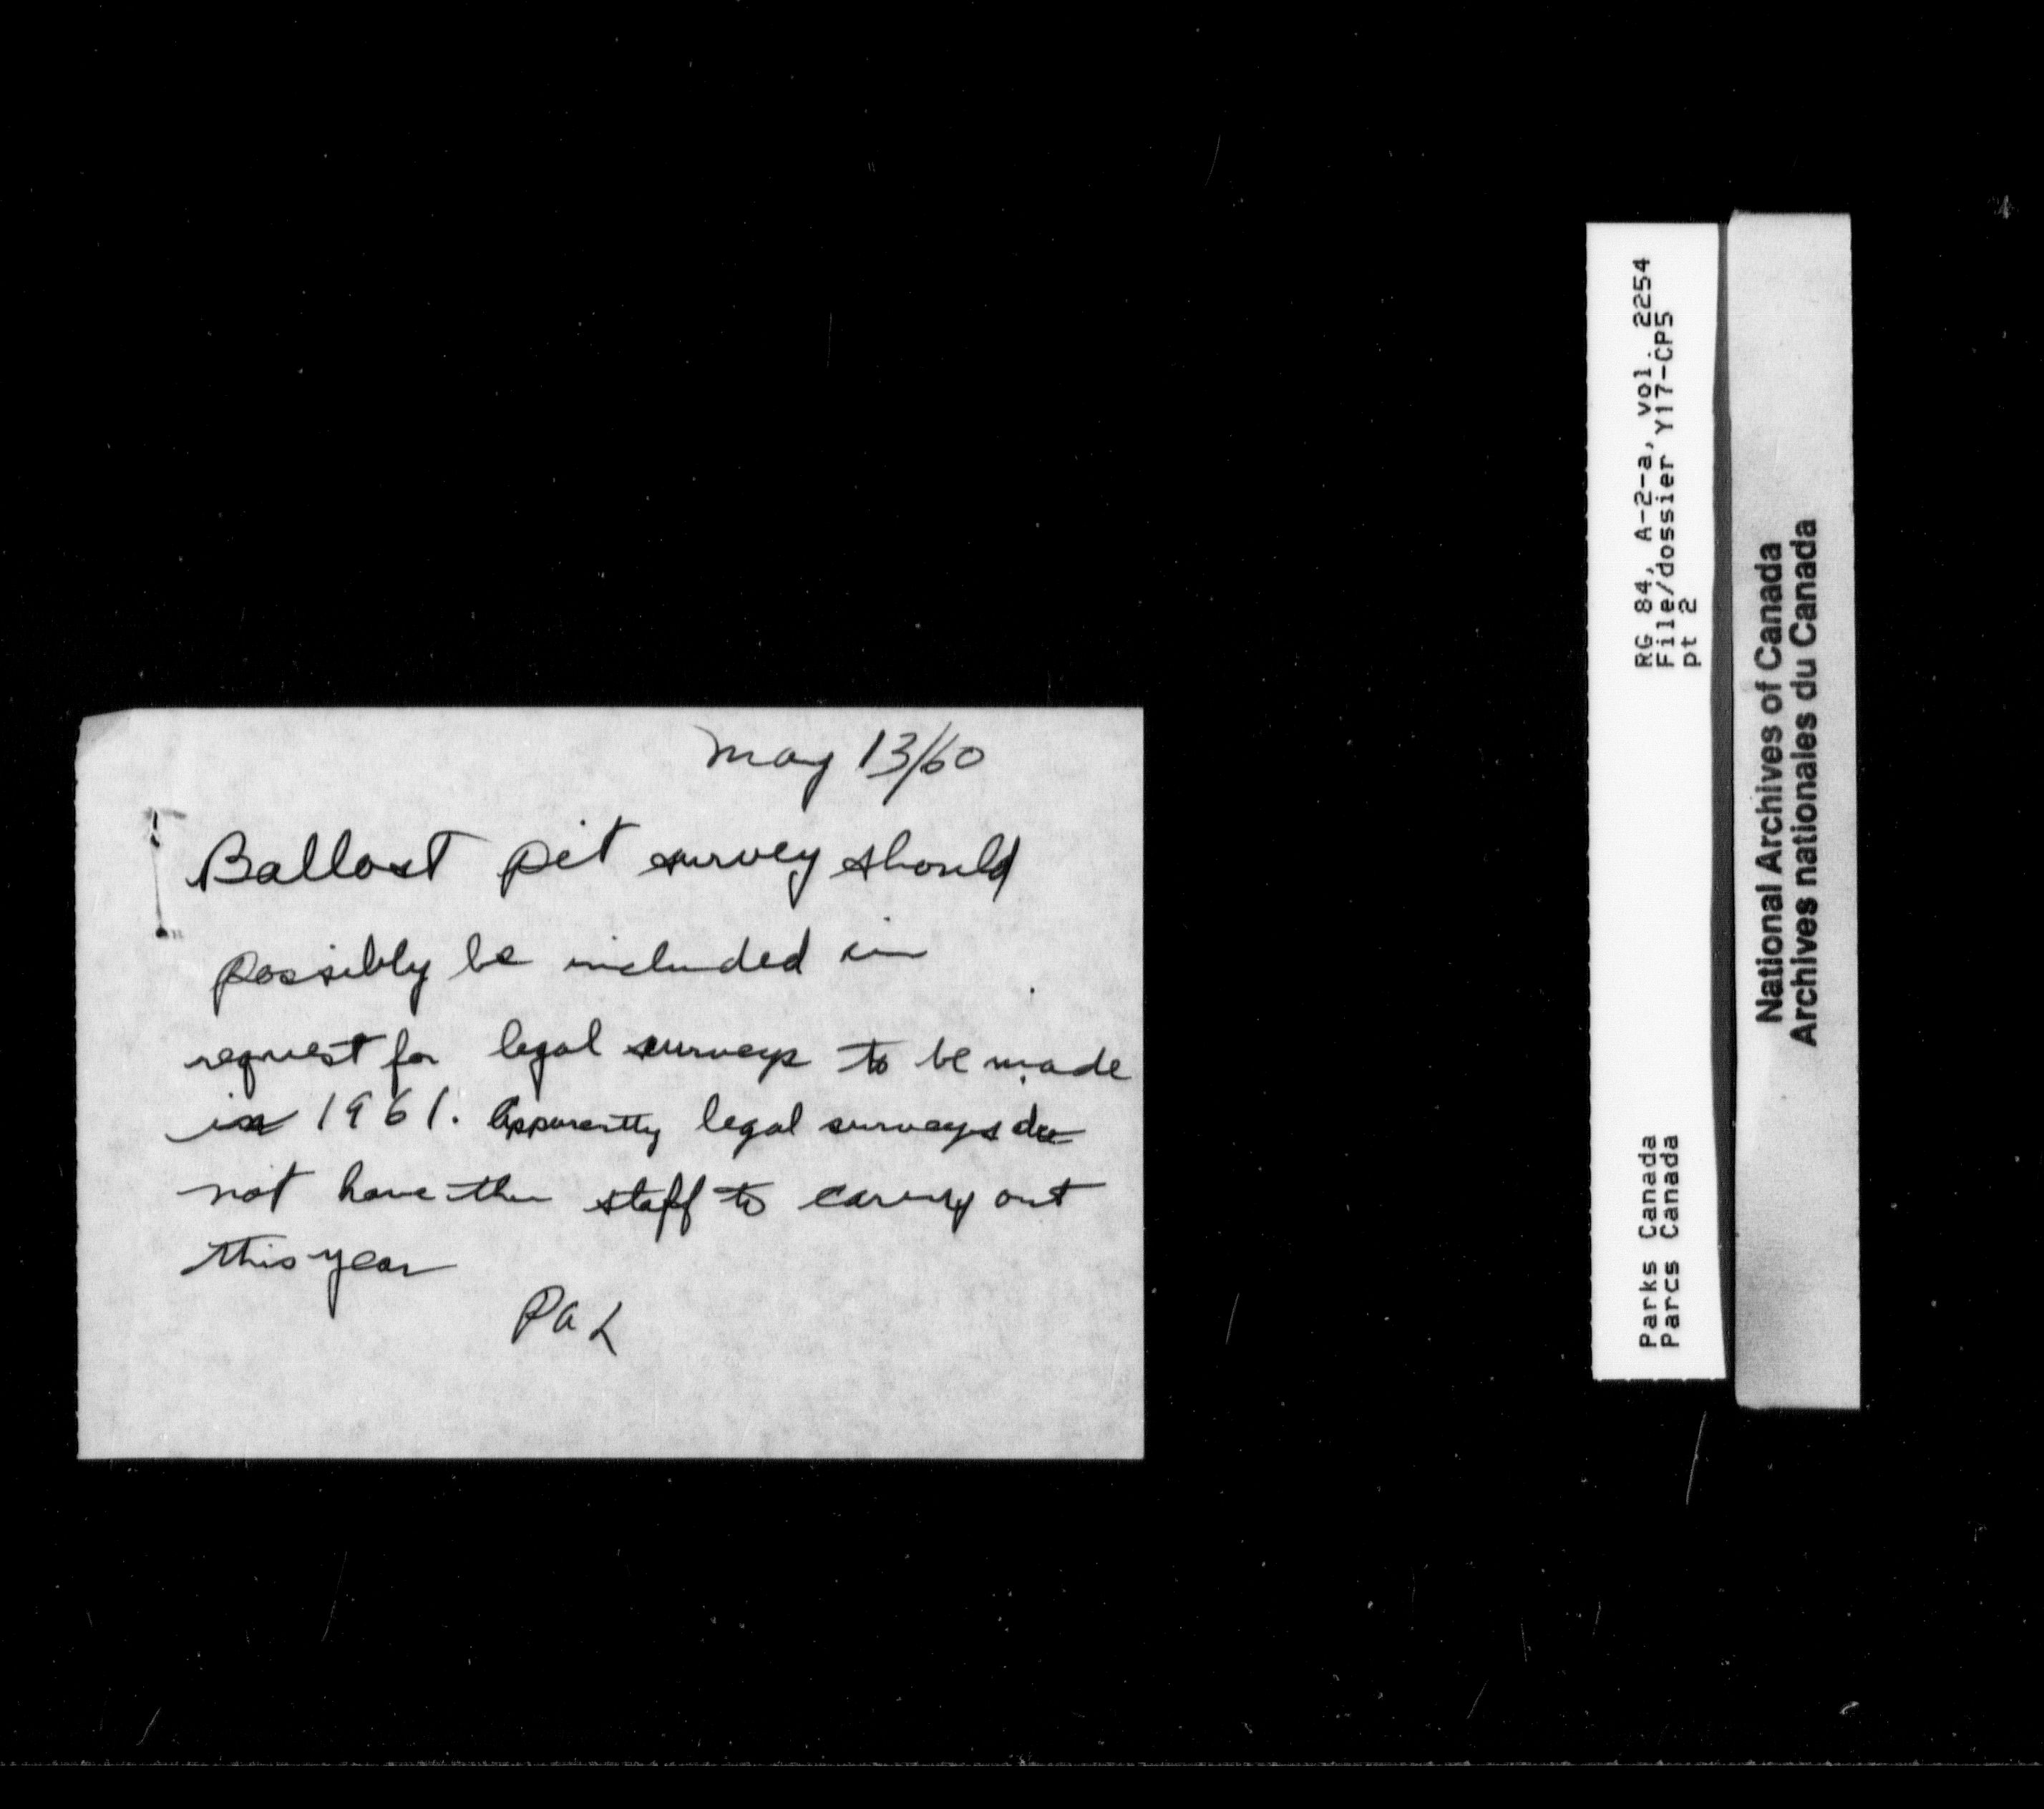 May 13/60
Ballast pit survey should
possibly be included in
request for legal surveys to be made
in 1961. Apparently legal surveys do
not have the staff to carry out
this year
PAL
RG 84, A-2-a, vol. 2254
File/dossier Y17-CP5
pt 2
Parks Canada
Parcs Canada
National Archives of Canada
Archives nationales du Canada